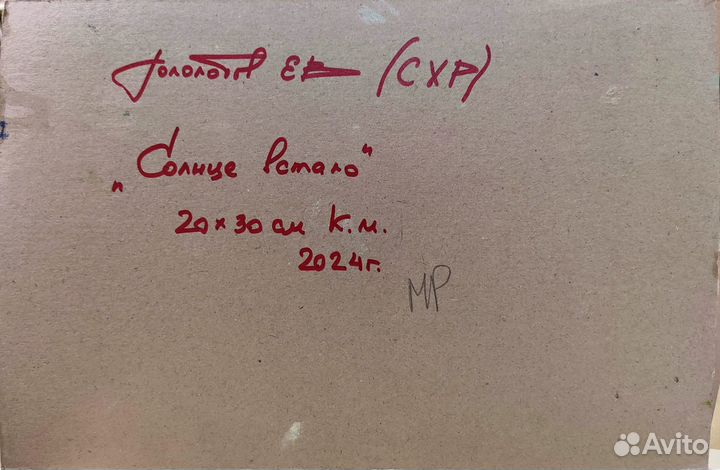 Гололобов ЕВ (СХР)
„Солнце встало"
20×30 см К.М.
2024г.
МР
Avito